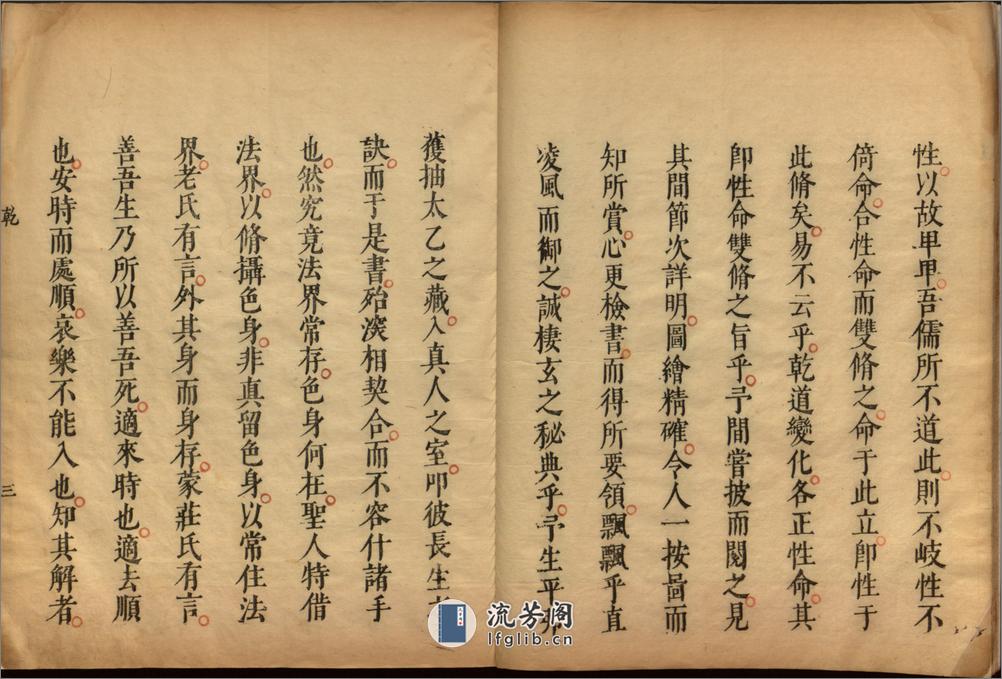 性。以故卑卑。吾儒所不道此。則不岐性不
倚命。合性命而雙脩之。命于此立。卽性于
此脩矣。易不云乎。乾道變化。各正性命。其
卽性命雙脩之旨乎。予間嘗披而閱之。見
其間節次詳明。圖繪精確。令人一按啚而
知所賞心。更檢書。而得所要領。飄飄乎直
凌風而御之。誠棲玄之秘典乎。予生平
獲抽太乙之藏。入真人之室。叩彼長生
訣。而于是書。殆深相契合。而不容什諸手
也。然究竟法界常存。色身何在。聖人特借
法界。以脩攝色身。非真留色身。以常住法
界。老氏有言。外其身而身存。蒙莊氏有言。
善吾生乃所以善吾死。適來時也。適去順
也。安時而處順。哀樂不能入也。知其解者。
乾
三
流芳阁
lfglib.cn